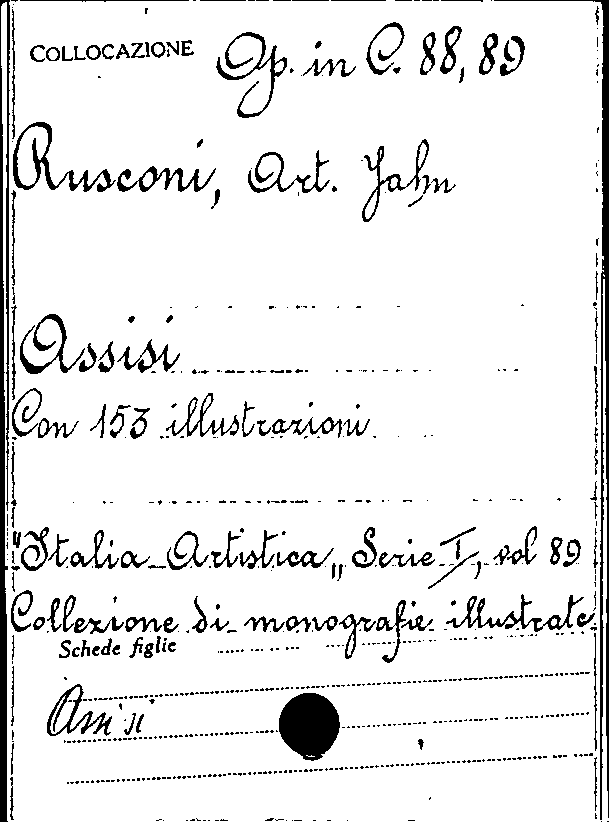 COLLOCAZIONE Op. in C. 88, 89
Rusconi, Art. Jahn
Assisi
Con 153 illustrazioni
"Italia Artistica„ Serie I, vol 89
Collezione di monografie illustrate
Schede figlie
Assisi